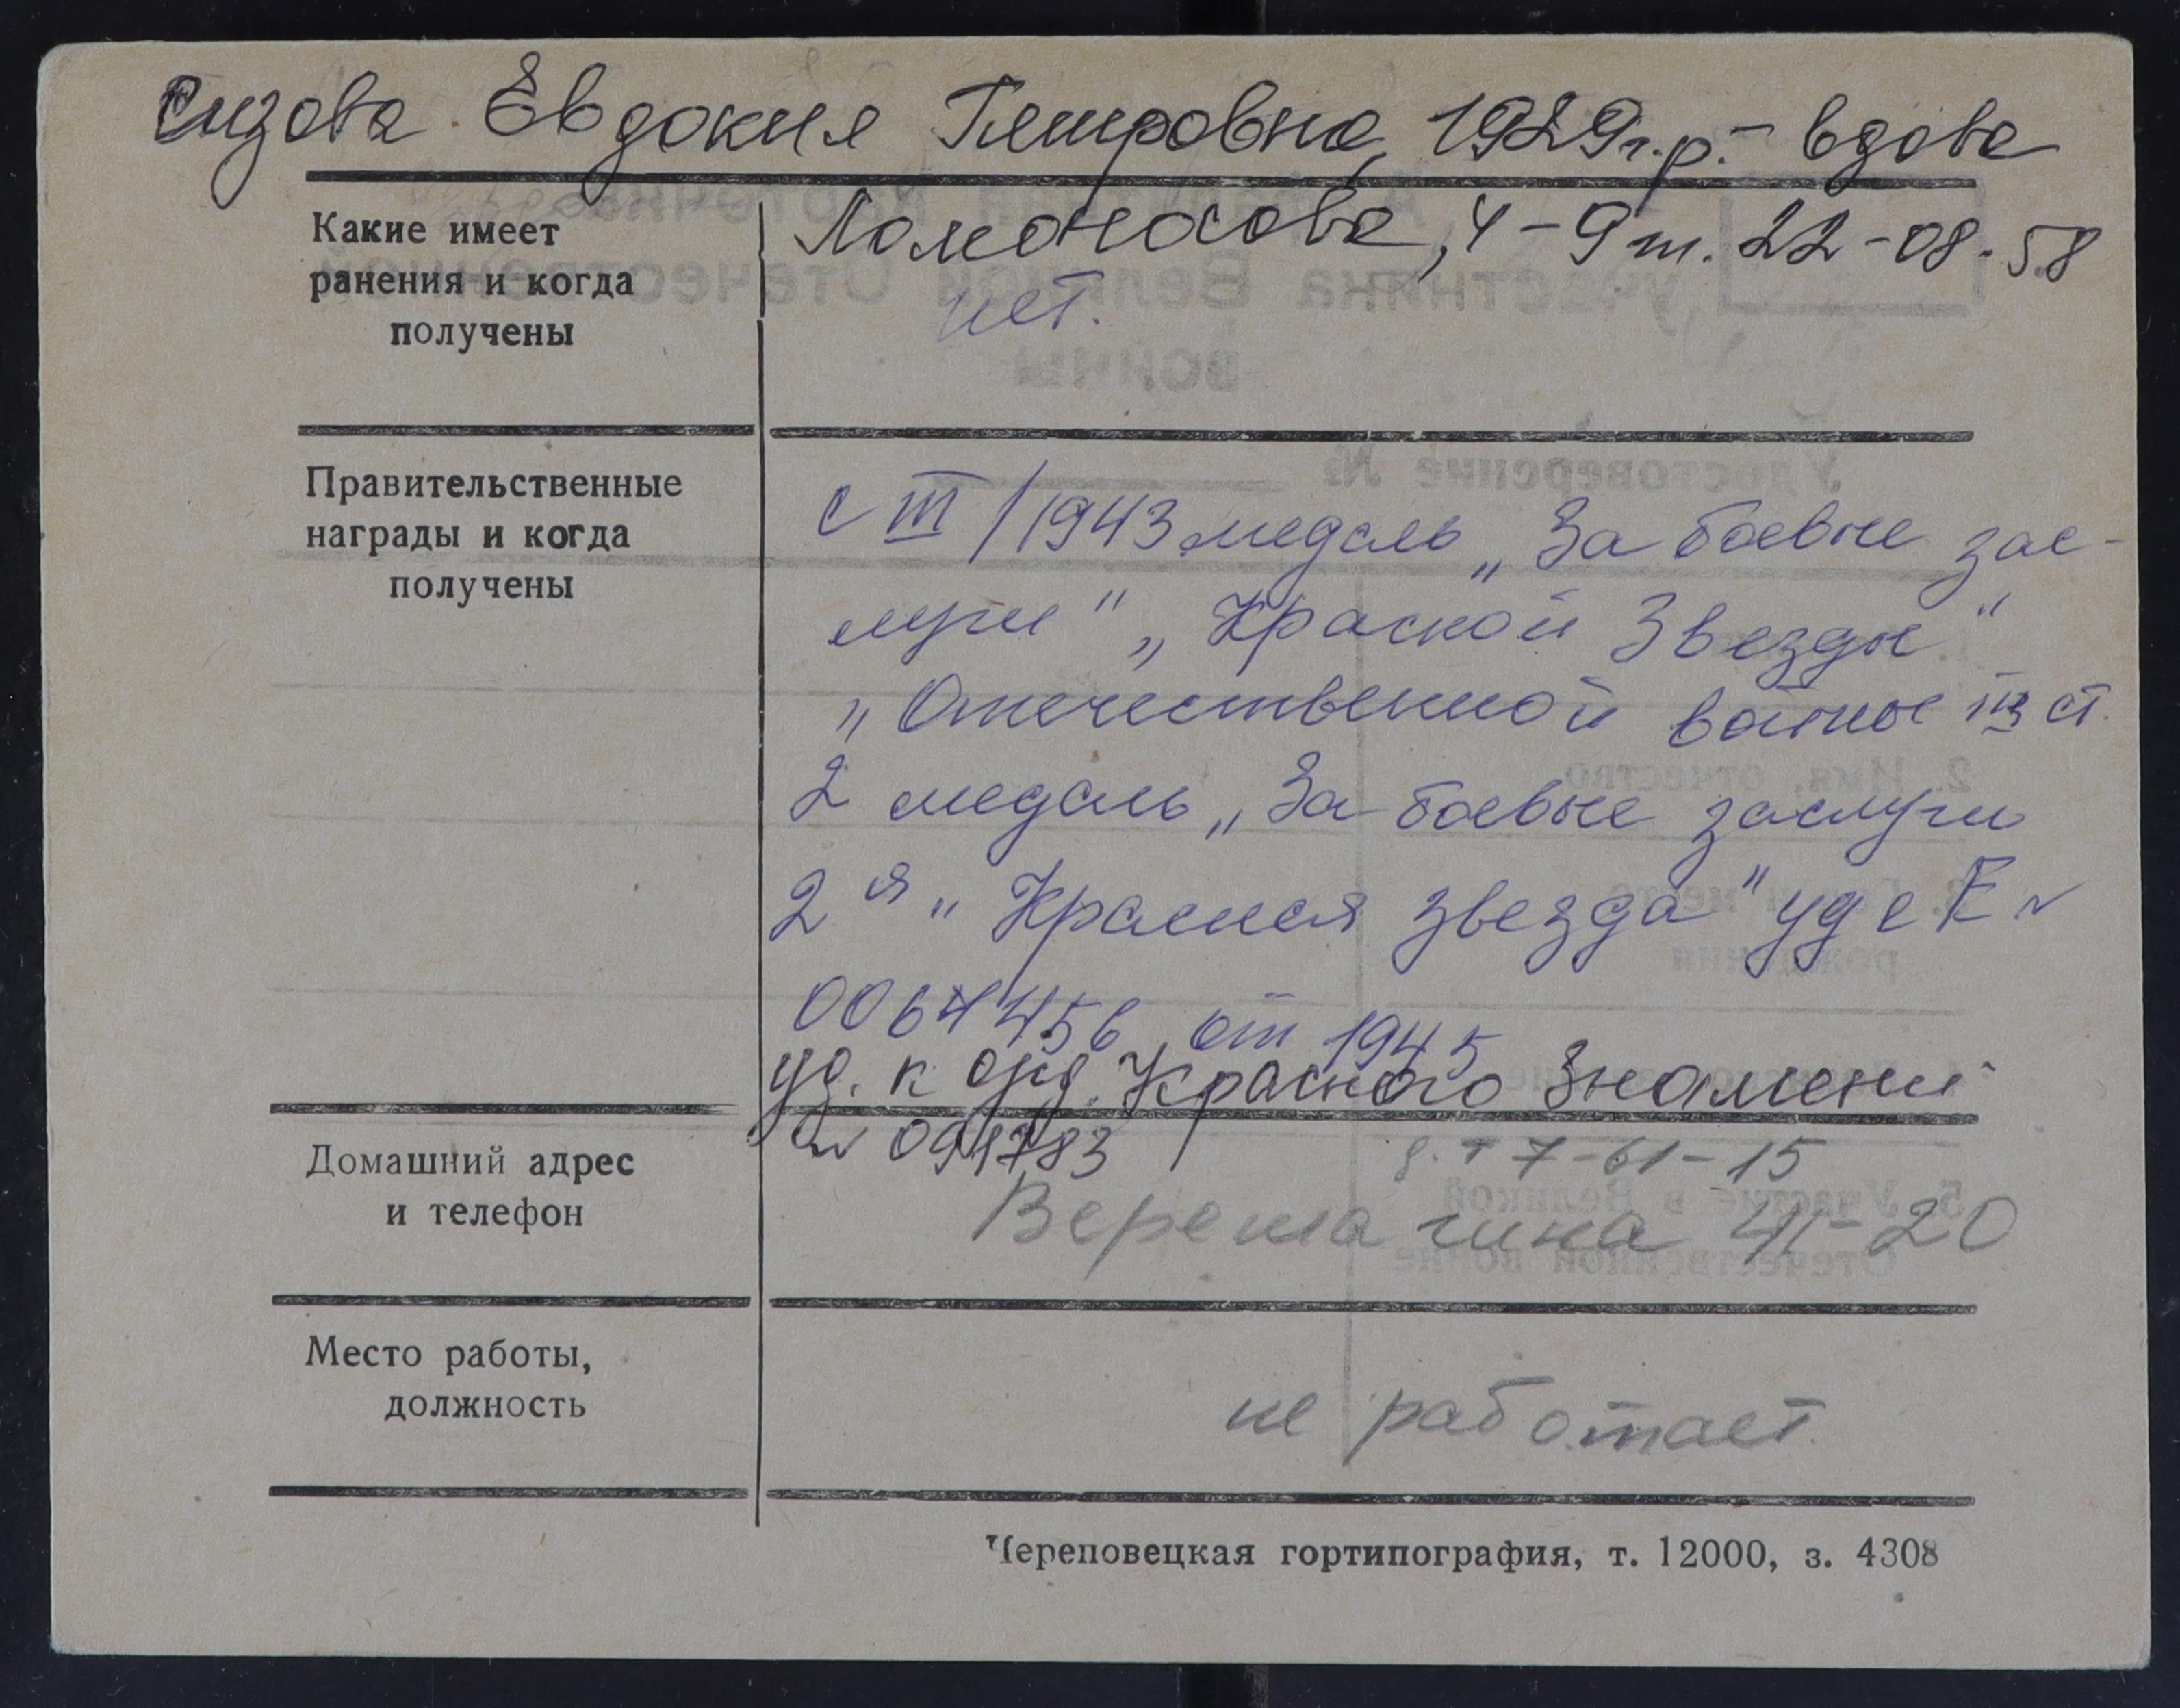 Сизова Евдокия Петровна, 1929 г.р. - вдова
Какие имеет
ранения и когда
получены
Ломоносова, 4-9 т. 22-08-58
нет.
Правительственные
награды и когда
получены
с III/1943 медаль „За боевые зас-
луги" „Красной Звезды"
„Отечественной войны ст.
2 медаль „За боевые заслуги
2я „Красная звезда" уд с Е №
от 1945
уд. к орд. Красного Знамени
Домашний адрес
и телефон
№
д.т 7-61-15
Верещагина 41-20
Место работы,
должность
не работает.
Череповецкая гортипография, т. 12000, з. 4308